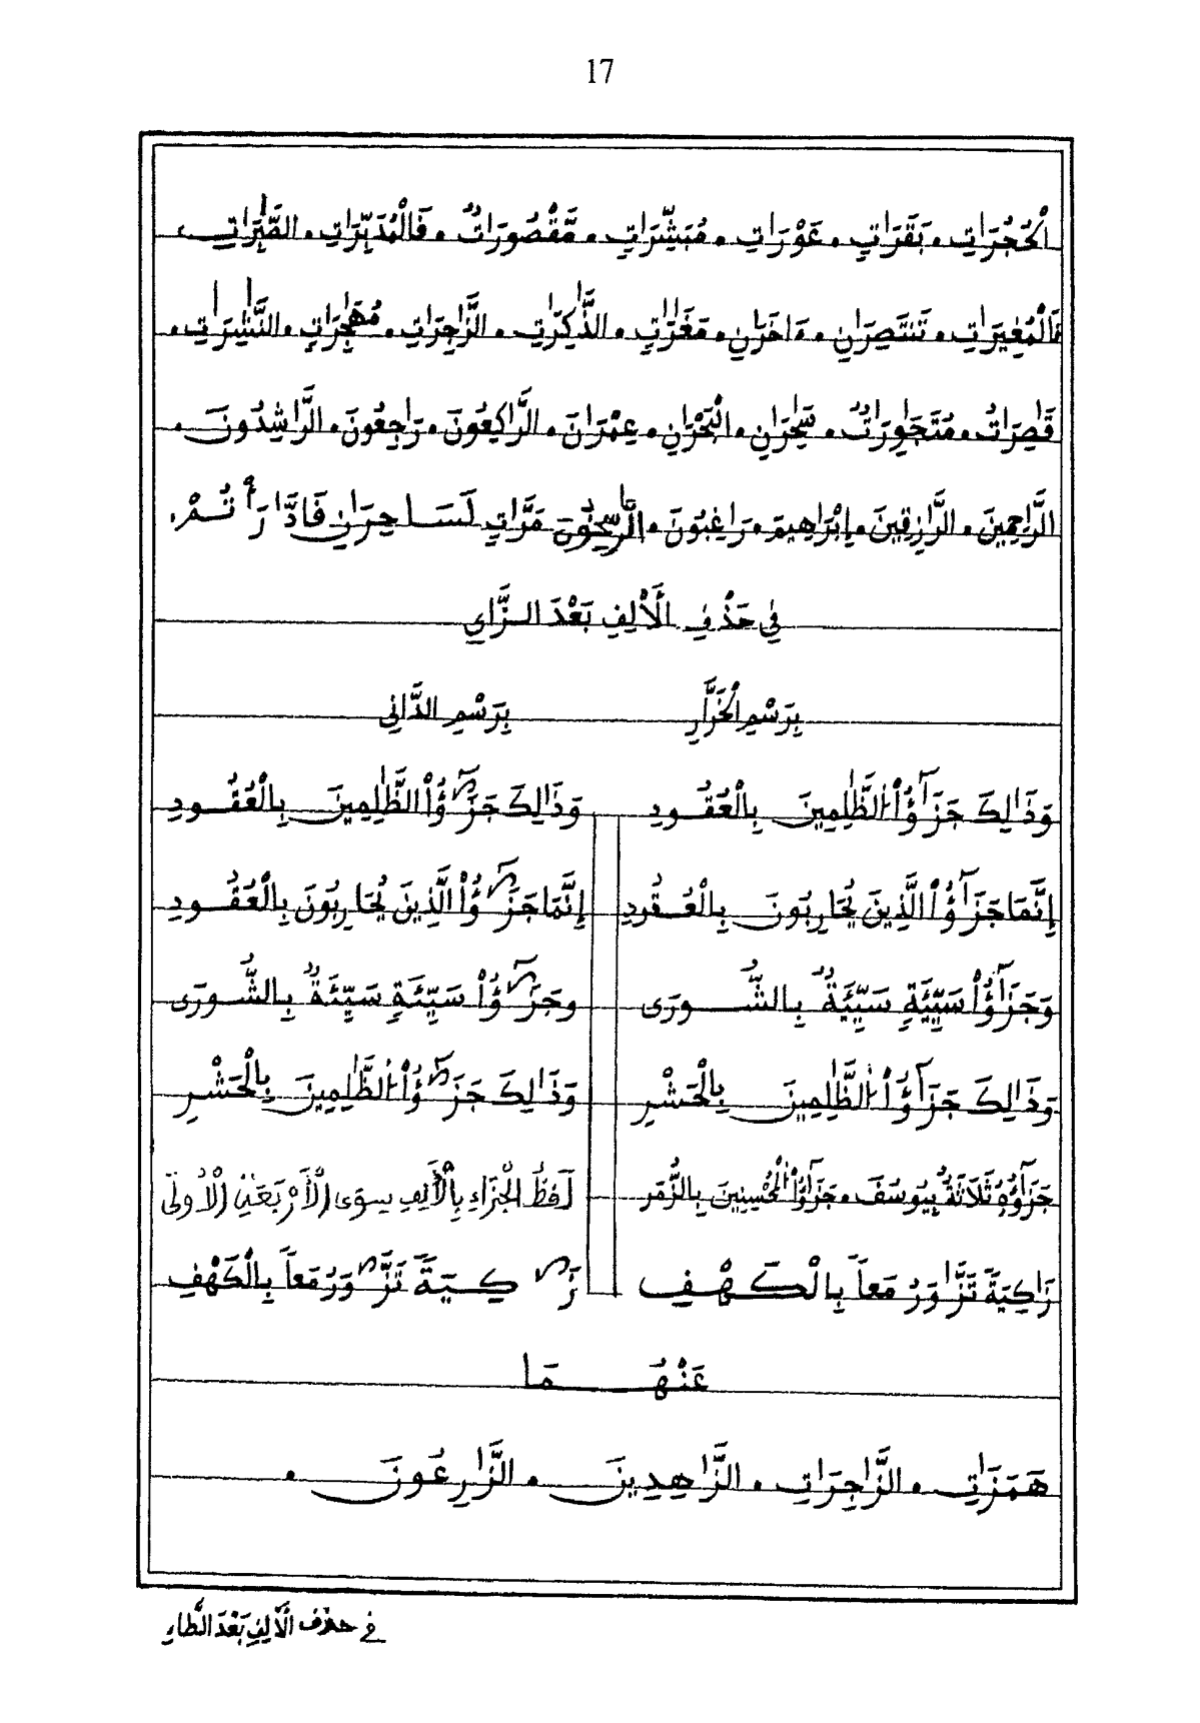 17
الْحُجُرَاتِ . بَقَرَاتٍ . عَوْرَاتِ . مُبَشِّرَاتٍ . مَّقْصُورَاتٌ . فَالْمُدَبِّرَاتِ . الصَّٰبِرَاتِ .
فَالْمُغِيرَاتِ . تَنتَصِرَانِ . ءَاخَرَانِ . مَغَٰرَاتٍ . الذَّٰكِرَاتِ . الزَّاجِرَاتِ . مُهَٰجِرَاتٍ . النَّٰشِرَاتِ .
قَٰصِرَاتُ . مُتَجَٰوِرَاتٌ . سَٰحِرَانِ . الْبَحْرَانِ . عِمْرَانَ . الرَّاكِعُونَ . رَاجِعُونَ . الرَّاشِدُونَ .
الرَّاحِمِينَ . الرَّازِقِينَ . إِبْرَاهِيمَ . رَاغِبُونَ . الرَّٰسِخُونَ مَرَّاتٍ لَسَاحِرَانِ فَادَّارَأْتُمْ .
فِي حَذْفِ الْأَلِفِ بَعْدَ الزَّايِ
بِرَسْمِ الْخَرَّازِ بِرَسْمِ الدَّانِي
وَذَالِكَ جَزَآؤُاْ الظَّٰلِمِينَ بِالْعُقُودِ وَذَالِكَ جَزَٰٓؤُاْ الظَّٰلِمِينَ بِالْعُقُودِ
إِنَّمَا جَزَآؤُاْ الَّذِينَ يُحَارِبُونَ بِالْعُقُودِ إِنَّمَا جَزَٰٓؤُاْ الَّذِينَ يُحَارِبُونَ بِالْعُقُودِ
وَجَزَآؤُاْ سَيِّئَةٍ سَيِّئَةٌ بِالشُّورَى وَجَزَٰٓؤُاْ سَيِّئَةٍ سَيِّئَةٌ بِالشُّورَى
وَذَالِكَ جَزَآؤُاْ الظَّٰلِمِينَ بِالْحَشْرِ وَذَالِكَ جَزَٰٓؤُاْ الظَّٰلِمِينَ بِالْحَشْرِ
جَزَآؤُهُ ثَلَاثَةٌ بِيُوسُفَ . جَزَآؤُاْ الْمُحْسِنِينَ بِالزُّمَر لَفْظُ الْجَزَاءِ بِالْأَلِفِ سِوَى الْأَرْبَعَةِ الْأُولَى
زَاكِيَةً تَزَّاوَرُ مَعاً بِالْكَهْفِ زَٰكِيَةً تَزَّٰوَرُ مَعاً بِالْكَهْفِ
عَنْهُمَا
هَمَزَاتِ . الزَّاجِرَاتِ . الزَّاهِدِينَ . الزَّارِعُونَ .
في حذف الْأَلِفِ بَعْدَ الطَّاءِ